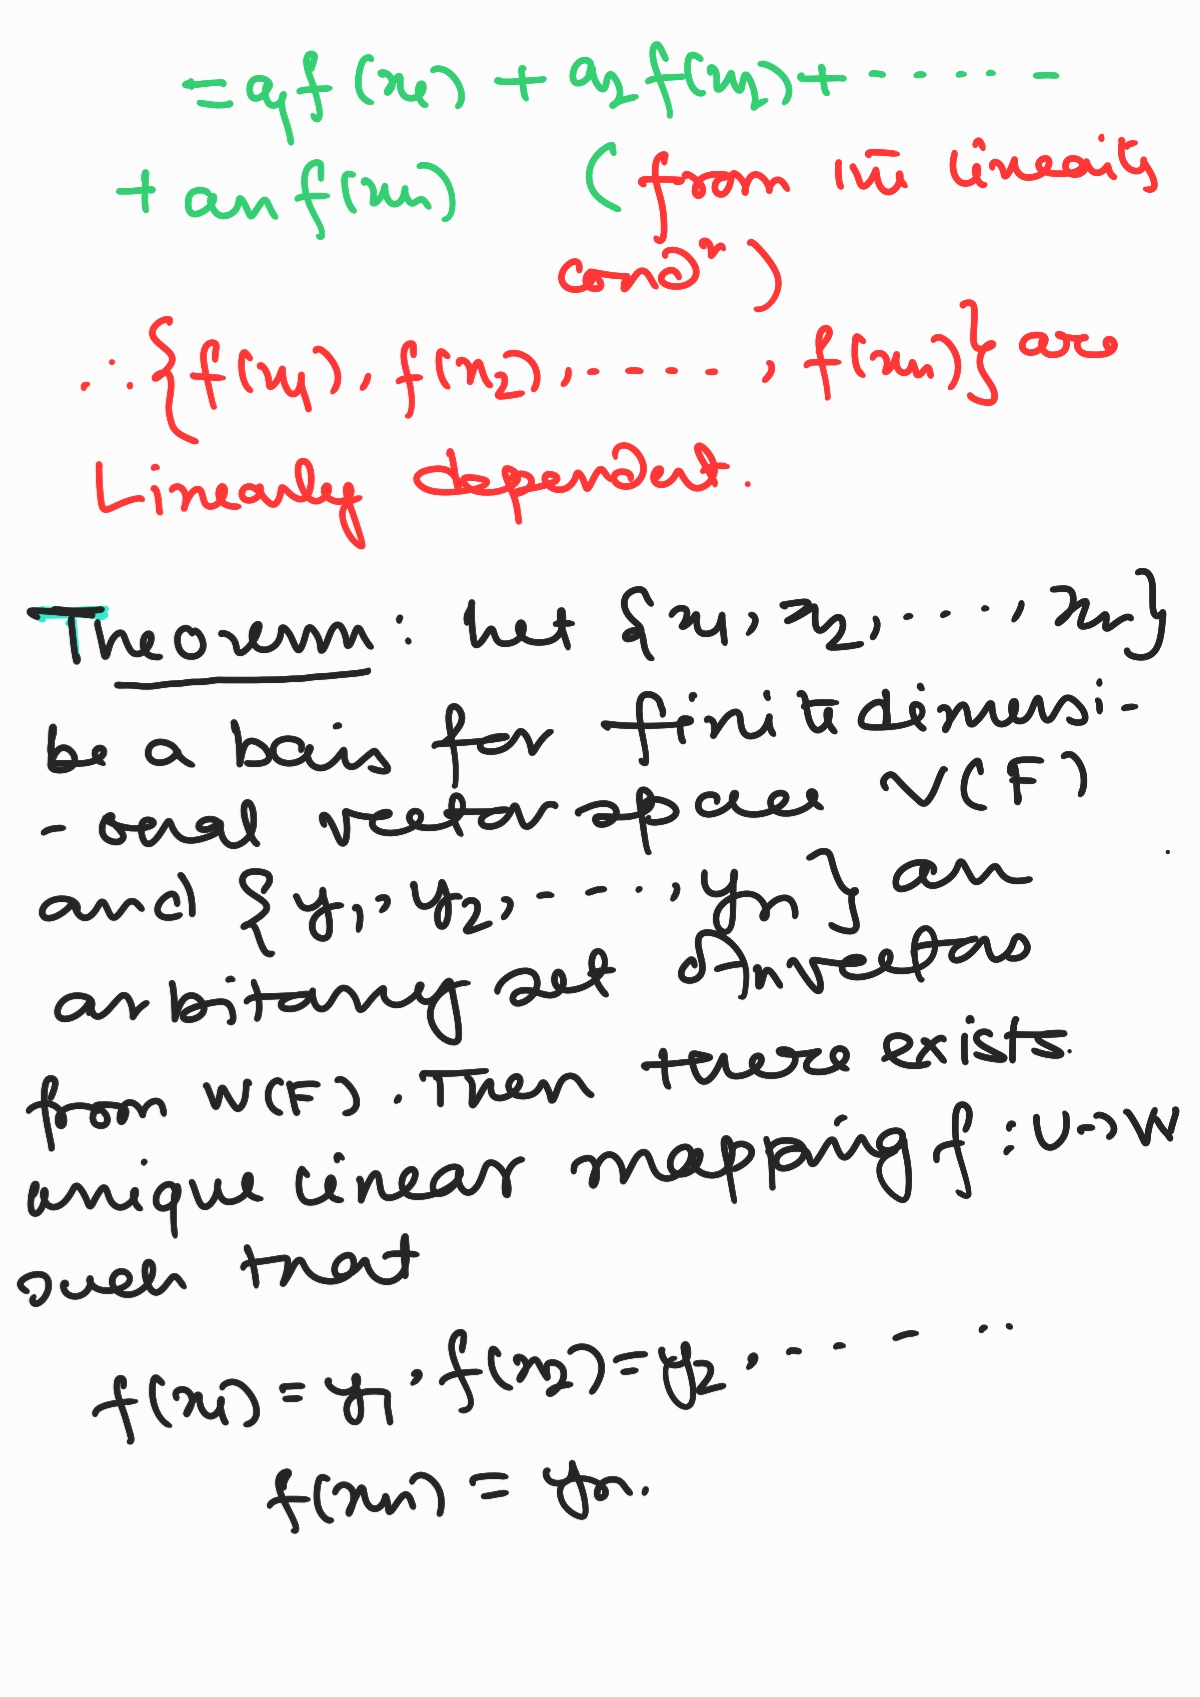 = a₁f(x₁) + a₂f(x₂) + ------
+ anf(xn) (from the linearity
condⁿ)
∴ {f(x₁), f(x₂), ....., f(xn)} are
Linearly dependent.
Theorem: Let {x₁, x₂, ...., xn}
be a basis for finite dimensi-
-onal vector space V(F)
and {y₁, y₂, ----, yn} an
arbitary set of n vectors
from W(F). Then there exists
unique linear mapping f: U→W
such that
f(x₁) = y₁, f(x₂) = y₂, ------
f(xn) = yn.